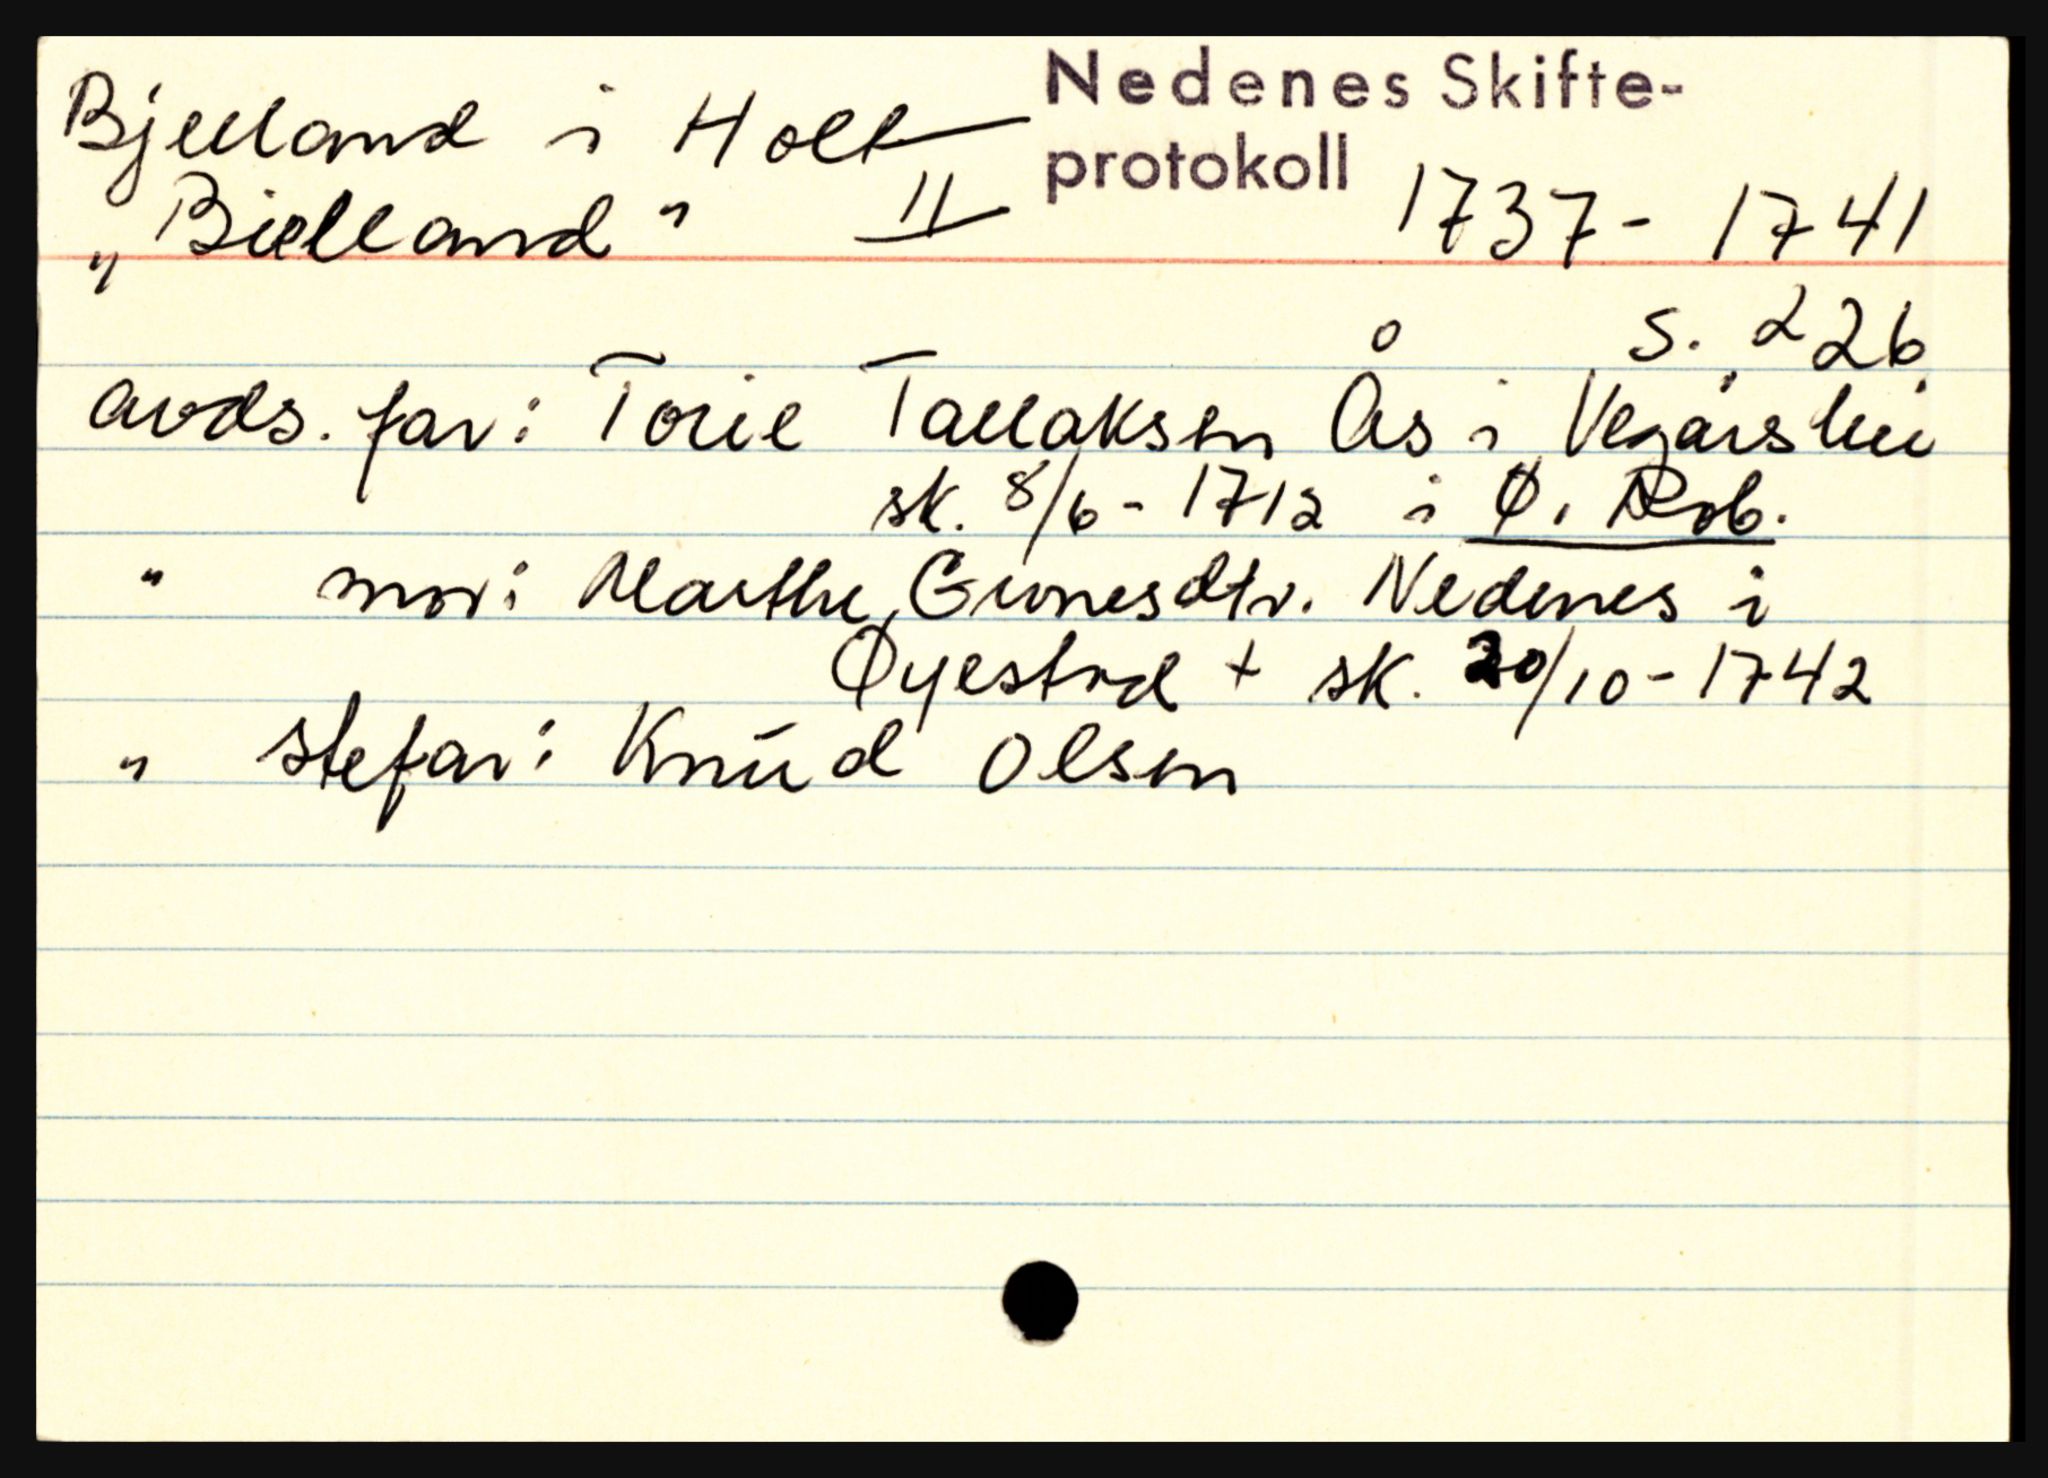 Bjelland i Holt
Nedenes Skifte-
protokoll
„Bielland" II
1737-1741
s. 226
avds. far: Torie Tallaksen Ås i Vegårshei
sk. 8/6-1712 i Ø. Rob.
" mor: Marthe Gunesdtr. Nedenes i
Øyestad + sk. 20/10-1742
" stefar: Knud Olsen